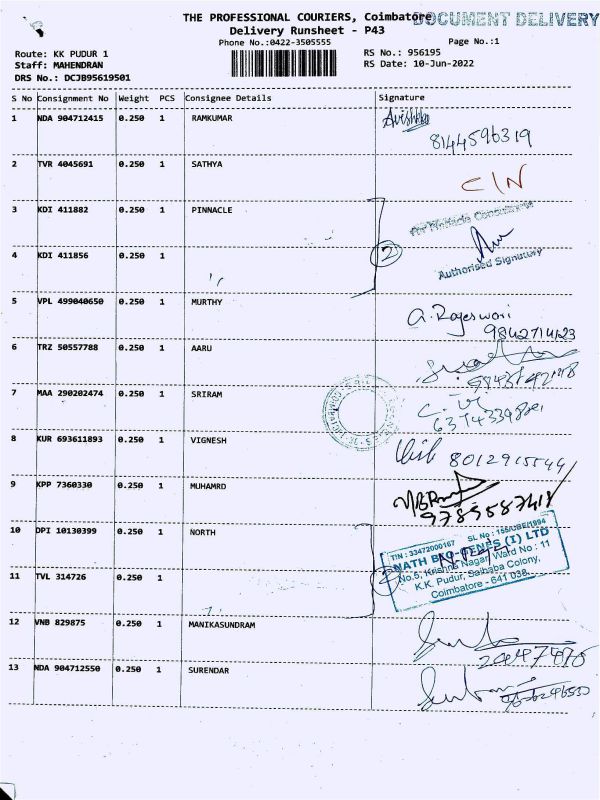 THE PROFESSIONAL COURIERS, Coimbatore
DOCUMENT DELIVERY
Delivery Runsheet - P43
Phone No.:0422-3505555
Page No.:1
Route: KK PUDUR 1
RS No.: 956195
Staff: MAHENDRAN
RS Date: 10-Jun-2022
DRS No.: DCJB95619501
S No Consignment No Weight PCS Consignee Details Signature
1 NDA 904712415 0.250 1 RAMKUMAR
8144596319
2 TVR 4045691 0.250 1 SATHYA
C/N
3 KDI 411882 0.250 1 PINNACLE
For Pinnacle Consultants
2
4 KDI 411856 0.250 1
Authorised Signatory
5 VPL 499040650 0.250 1 MURTHY
G. Rajeswari
9842714123
6 TRZ 50557788 0.250 1 AARU
7 MAA 290202474 0.250 1 SRIRAM
8 KUR 693611893 0.250 1 VIGNESH
8012915544
9 KPP 7360330 0.250 1 MUHAMRD
10 DPI 10130399 0.250 1 NORTH
TIN : 33472000167 SL No : 155/UBE/1994
NATH BIO-GENES (I) LTD
No.5, Krishna Nagar Ward No : 11
K.K. Pudur, Saibaba Colony,
Coimbatore - 641 038.
2
11 TVL 314726 0.250 1
12 VNB 829875 0.250 1 MANIKASUNDRAM
13 NDA 904712550 0.250 1 SURENDAR